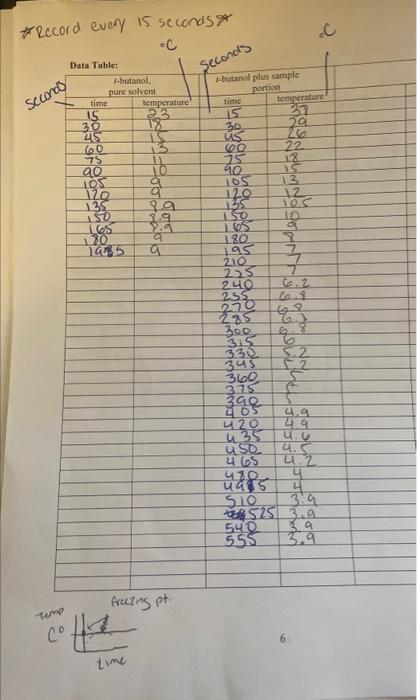 *Record every 15 seconds*
°C
seconds
°C
Data Table:
seconds
t-butanol, pure solvent
t-butanol plus sample portion
time temperature time temperature
15 23 15
30 18 30 29
45 15 45 26
60 13 60 22
75 11 75 18
90 10 90 15
105 9 105 13
120 9 120 12
135 8.9 135 10.5
150 8.9 150 10
165 8.9 165 9
180 9 180 8
9 195 7
210 7
225 7
240 6.2
255 6.8
270 6.8
285
300 6.8
315 6
330 5.2
345 5.2
360 5
375 5
390 5
405 4.9
420 4.9
435 4.6
450 4.5
465 4.2
480 4
4
510 3.9
525 3.9
540 3.9
555 3.9
freezing pt.
Temp
C°
time
6